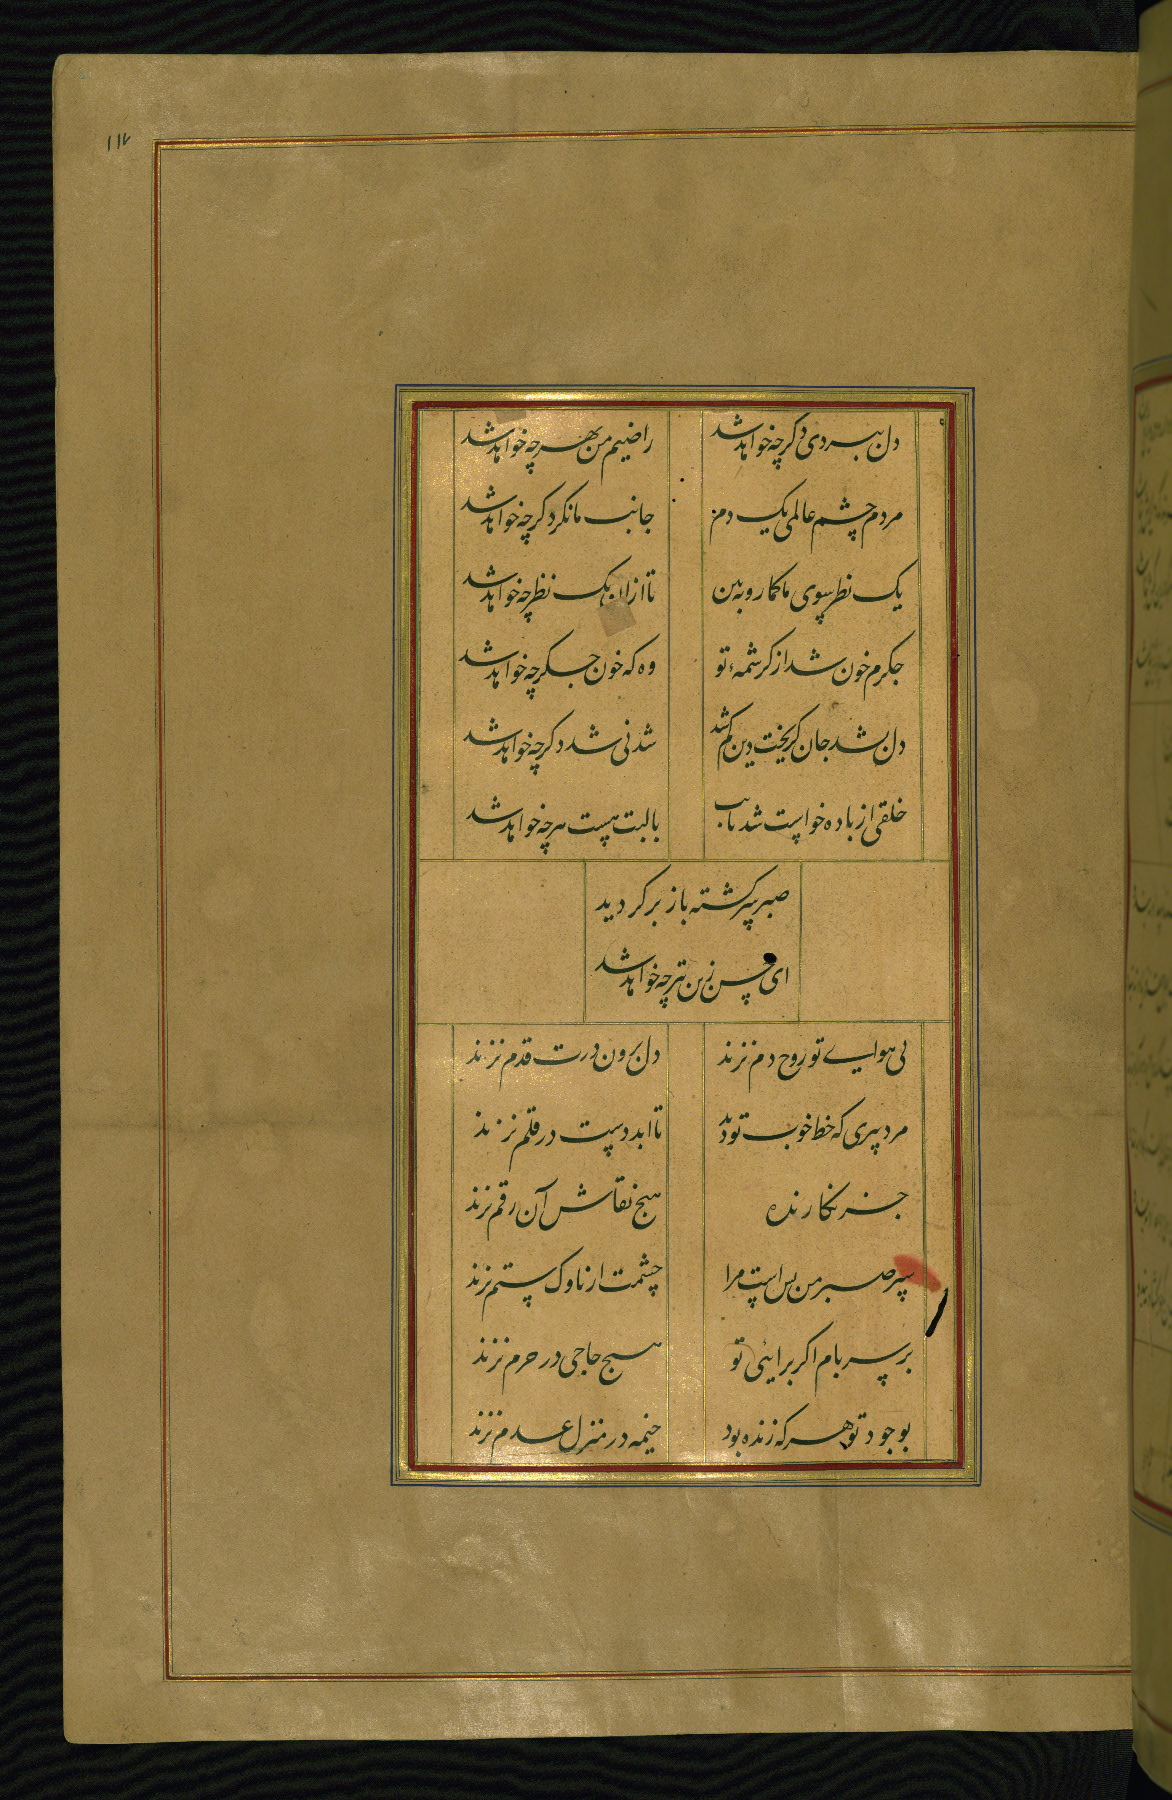 ۱۱۲
دل ببردی دکرچه خواهد شد
راضیم من بهرچه خواهد شد
مردم چشم عالمی یک دم
جانب ما نکر دکرچه خواهد شد
یک نظر سوی ما کمار و ببین
تا ازان یک نظر چه خواهد شد
جکرم خون شد از کرشمهٔ تو
وه که خون جکر چه خواهد شد
دل بشد جان کریخت دین کم شد
شدنی شد دکرچه خواهد شد
خلقی از باده خواست شد
با لبت هست هرچه خواهد شد
صبر سرکشته باز برکردید
ای حسن زین بتر چه خواهد شد
بی هوای تو روح دم نزند
دل برون درت قدم نزند
مرد پیری که خط خوب تو دید
تا ابد دست در قلم نزند
جز نکارنده
هیج نقاش آن رقم نزند
سپر صبر من بس است مرا
چشمت ار ناوک ستم نزند
بر سر بام اکر برائی تو
هیج حاجی در حرم نزند
بوجود تو هرکه زنده بود
خیمه در منزل عدم نزند